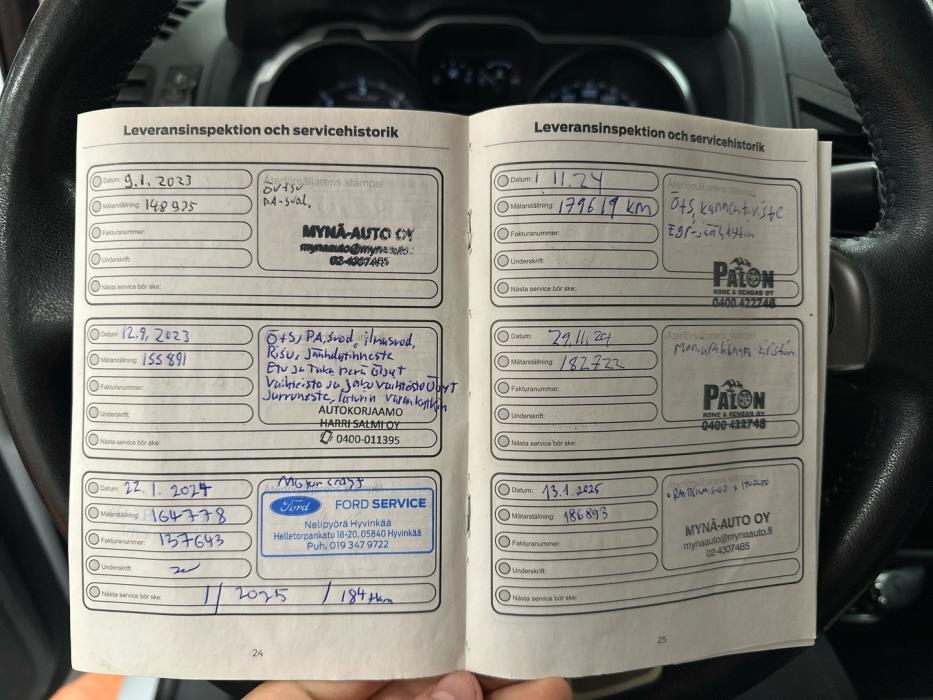 Leveransinspektion och servicehistorik
Datum: 9.1.2023
Återförsäljarens stämpel
Mätarställning: 148935
PA-svod.
Fakturanummer:
MYNÄ-AUTO OY
02-4307465
Underskrift:
Nästa service bör ske:
Datum: 12.9.2023
Ö+S, PA.svod, ilmasvod,
Mätarställning: 155891
Risu, Jäähdytinneste
Etu ja Taka perä Öljyt
Fakturanummer:
Vaihteisto ja jako vaihteisto Öljyt
Underskrift:
Jarruneste, laturin
AUTOKORJAAMO
HARRI SALMI OY
0400-011395
Nästa service bör ske:
Datum: 22.1.2024
Motorcraft
Mätarställning: 164778
Ford FORD SERVICE
Nelipyörä Hyvinkää
Helletorpankatu 18-20, 05840 Hyvinkää
Puh. 019 347 9722
Fakturanummer: 137643
Underskrift:
Nästa service bör ske: 1/2025 / 184tkm
24
Leveransinspektion och servicehistorik
Datum: 1 11.24
Återförsäljarens stämpel
Mätarställning: 179619 km
Ö+S, kannentiiviste
Fakturanummer:
Underskrift:
PALON
KONE & RENGAS OY
0400 422748
Nästa service bör ske:
Datum: 29.11.24
Återförsäljarens stämpel
Mätarställning: 182722
Fakturanummer:
PALON
KONE & RENGAS OY
0400 422748
Underskrift:
Nästa service bör ske:
Datum: 13.1.2025
Mätarställning: 186893
MYNÄ-AUTO OY
mynaauto@mynaauto.fi
02-4307465
Fakturanummer:
Underskrift:
Nästa service bör ske:
25